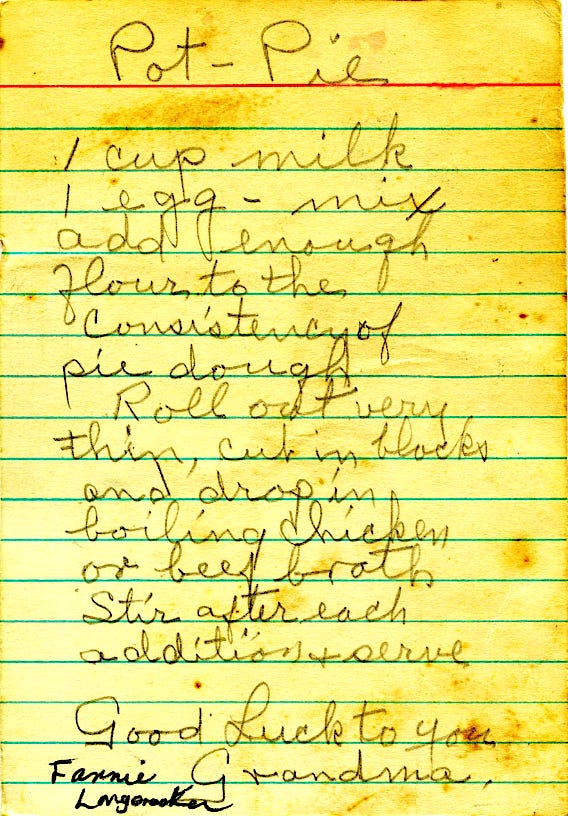 Pot-Pie
1 cup milk
1 egg - mix
add enough
flour to the
consistency of
pie dough
Roll out very
thin, cut in blocks
and drop in
boiling chicken
or beef broth
Stir after each
addition + serve
Good Luck to you
Grandma.
Fannie